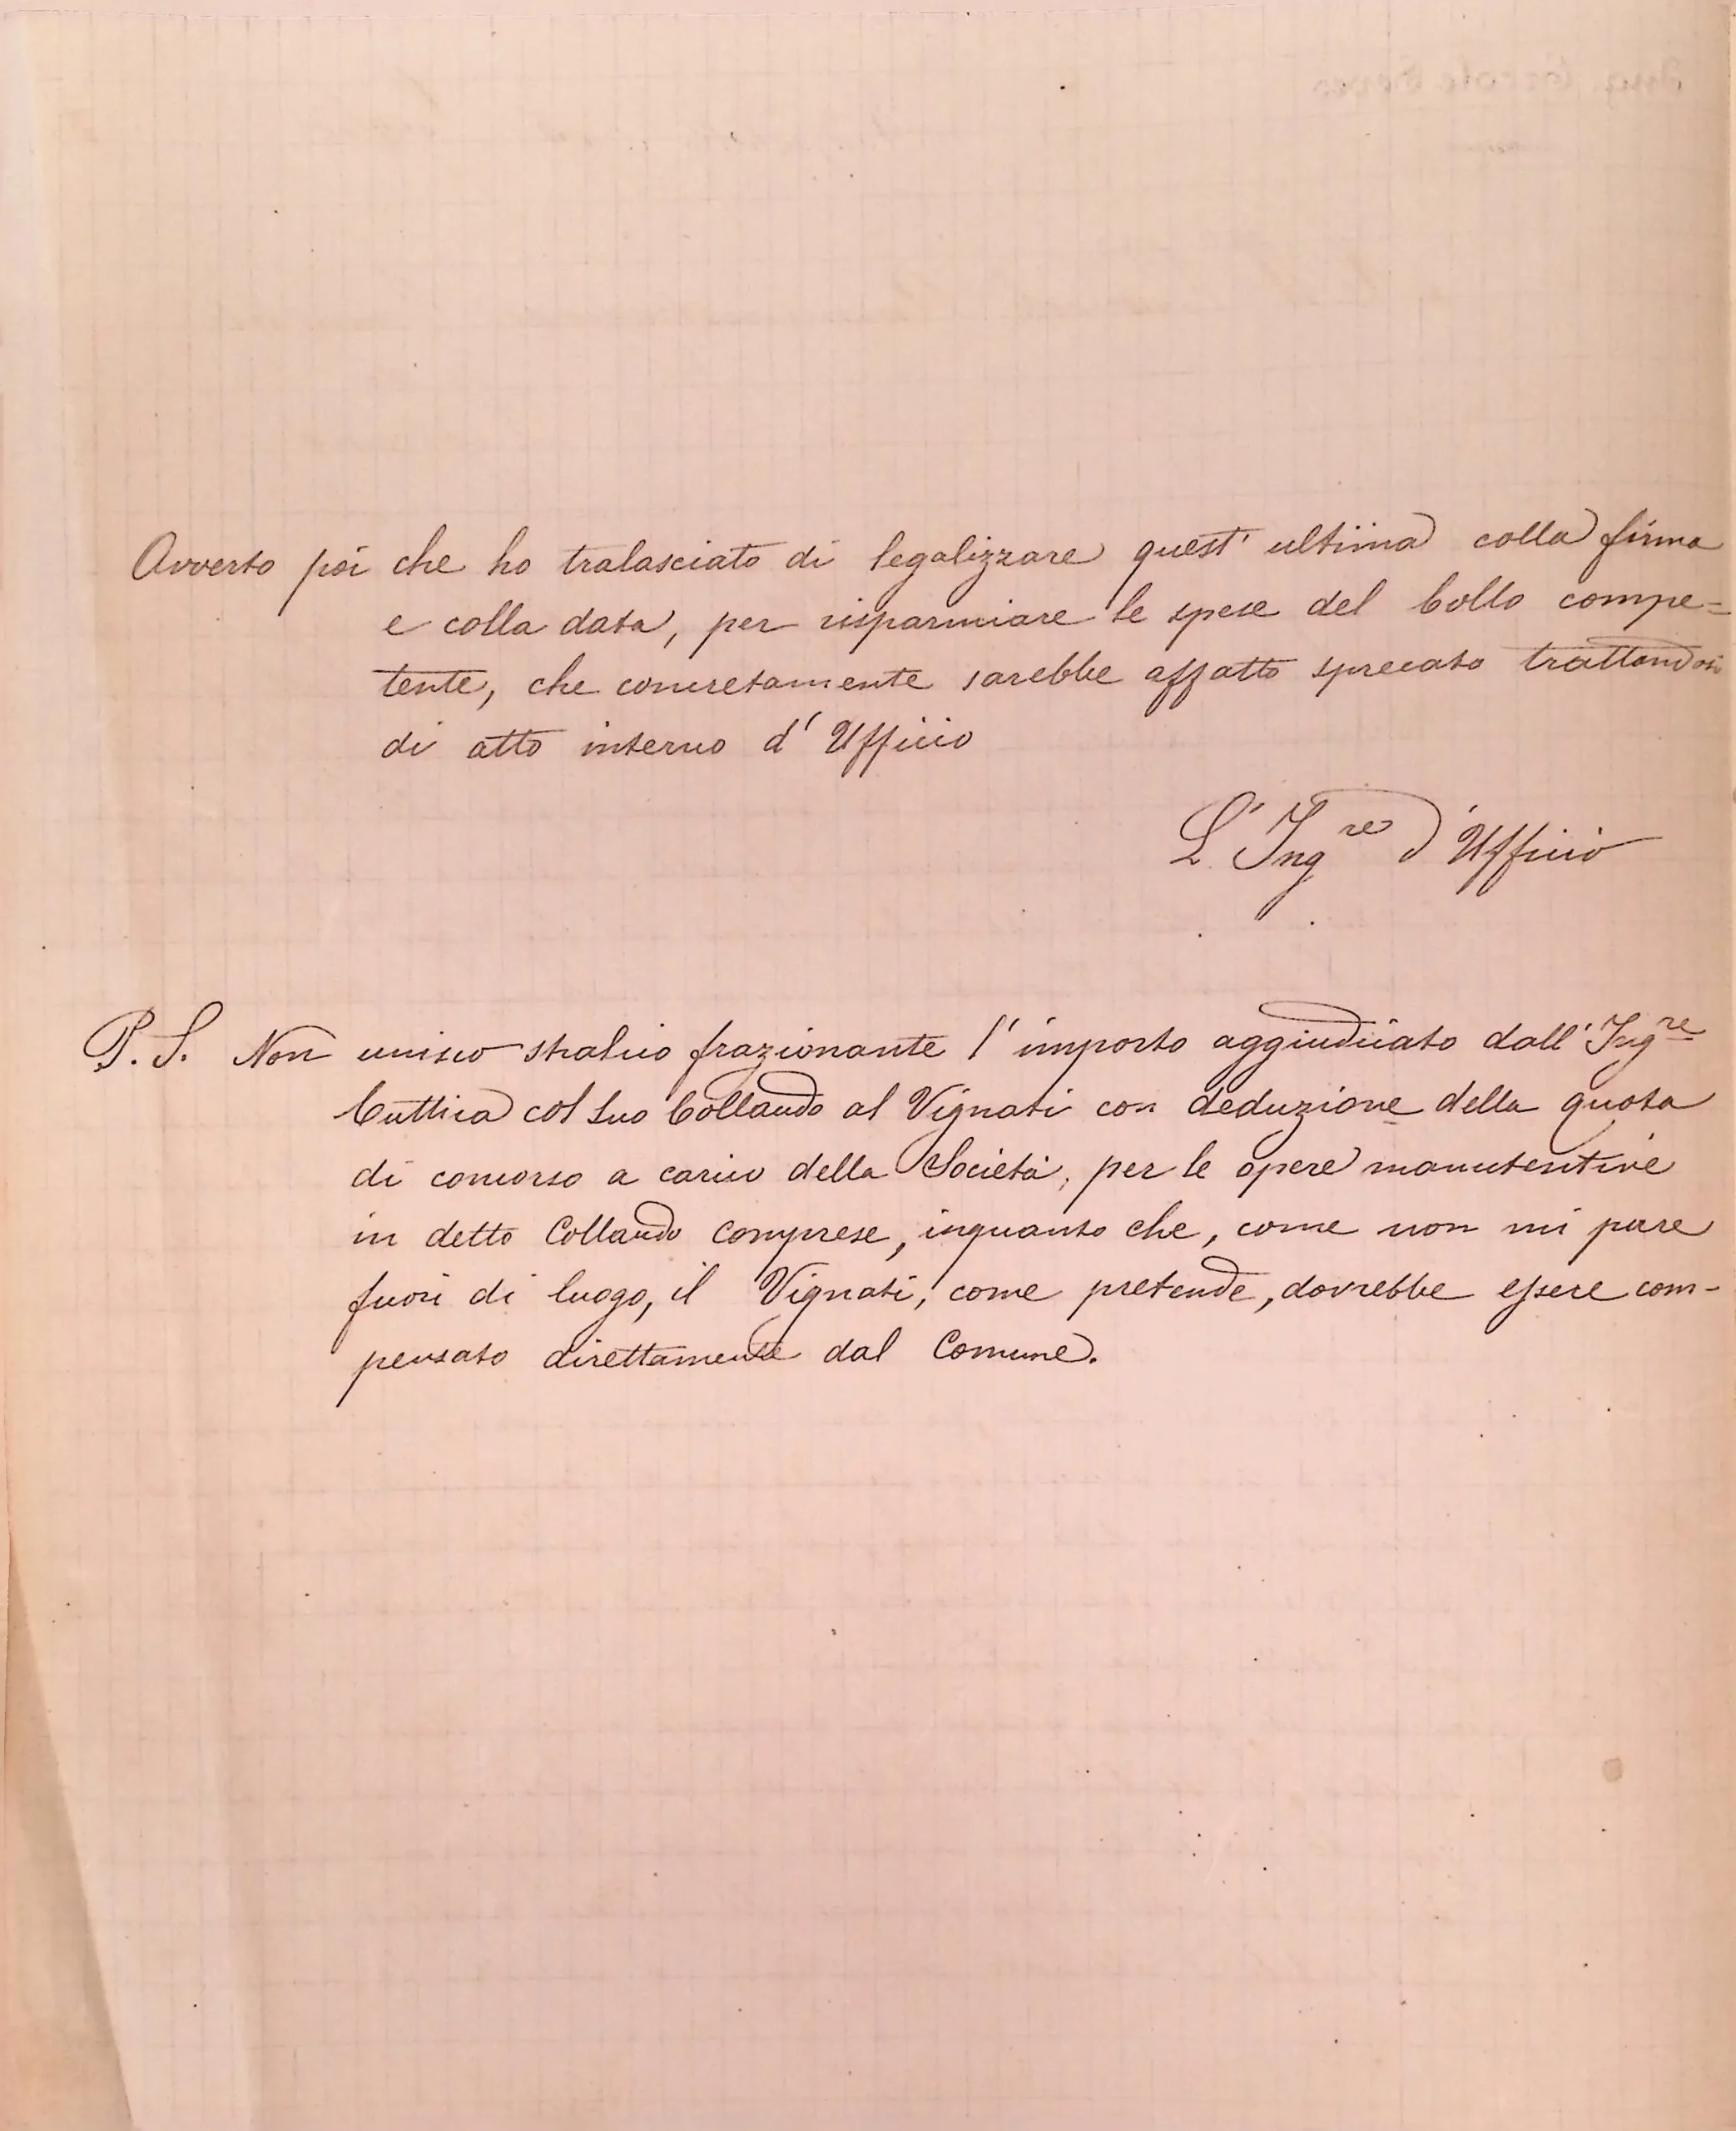 Avverto poi che ho tralasciato di legalizzare quest' ultima colla firma
e colla data, per risparmiare le spese del bollo compe=
tente, che concretamente sarebbe affatto sprecato trattandosi
di atto interno d' Ufficio
L' Ing.re d' Ufficio
P. S. Non unisco stralcio frazionante l' importo aggiudicato dall' Ing.re
Cuttica col suo Collaudo al Vignati con deduzione della quota
di concorso a carico della Società, per le opere manutentive
in detto Collaudo comprese, inquanto che, come non mi pare
fuori di luogo, il Vignati, come pretende, dovrebbe essere com-
pensato direttamente dal Comune.